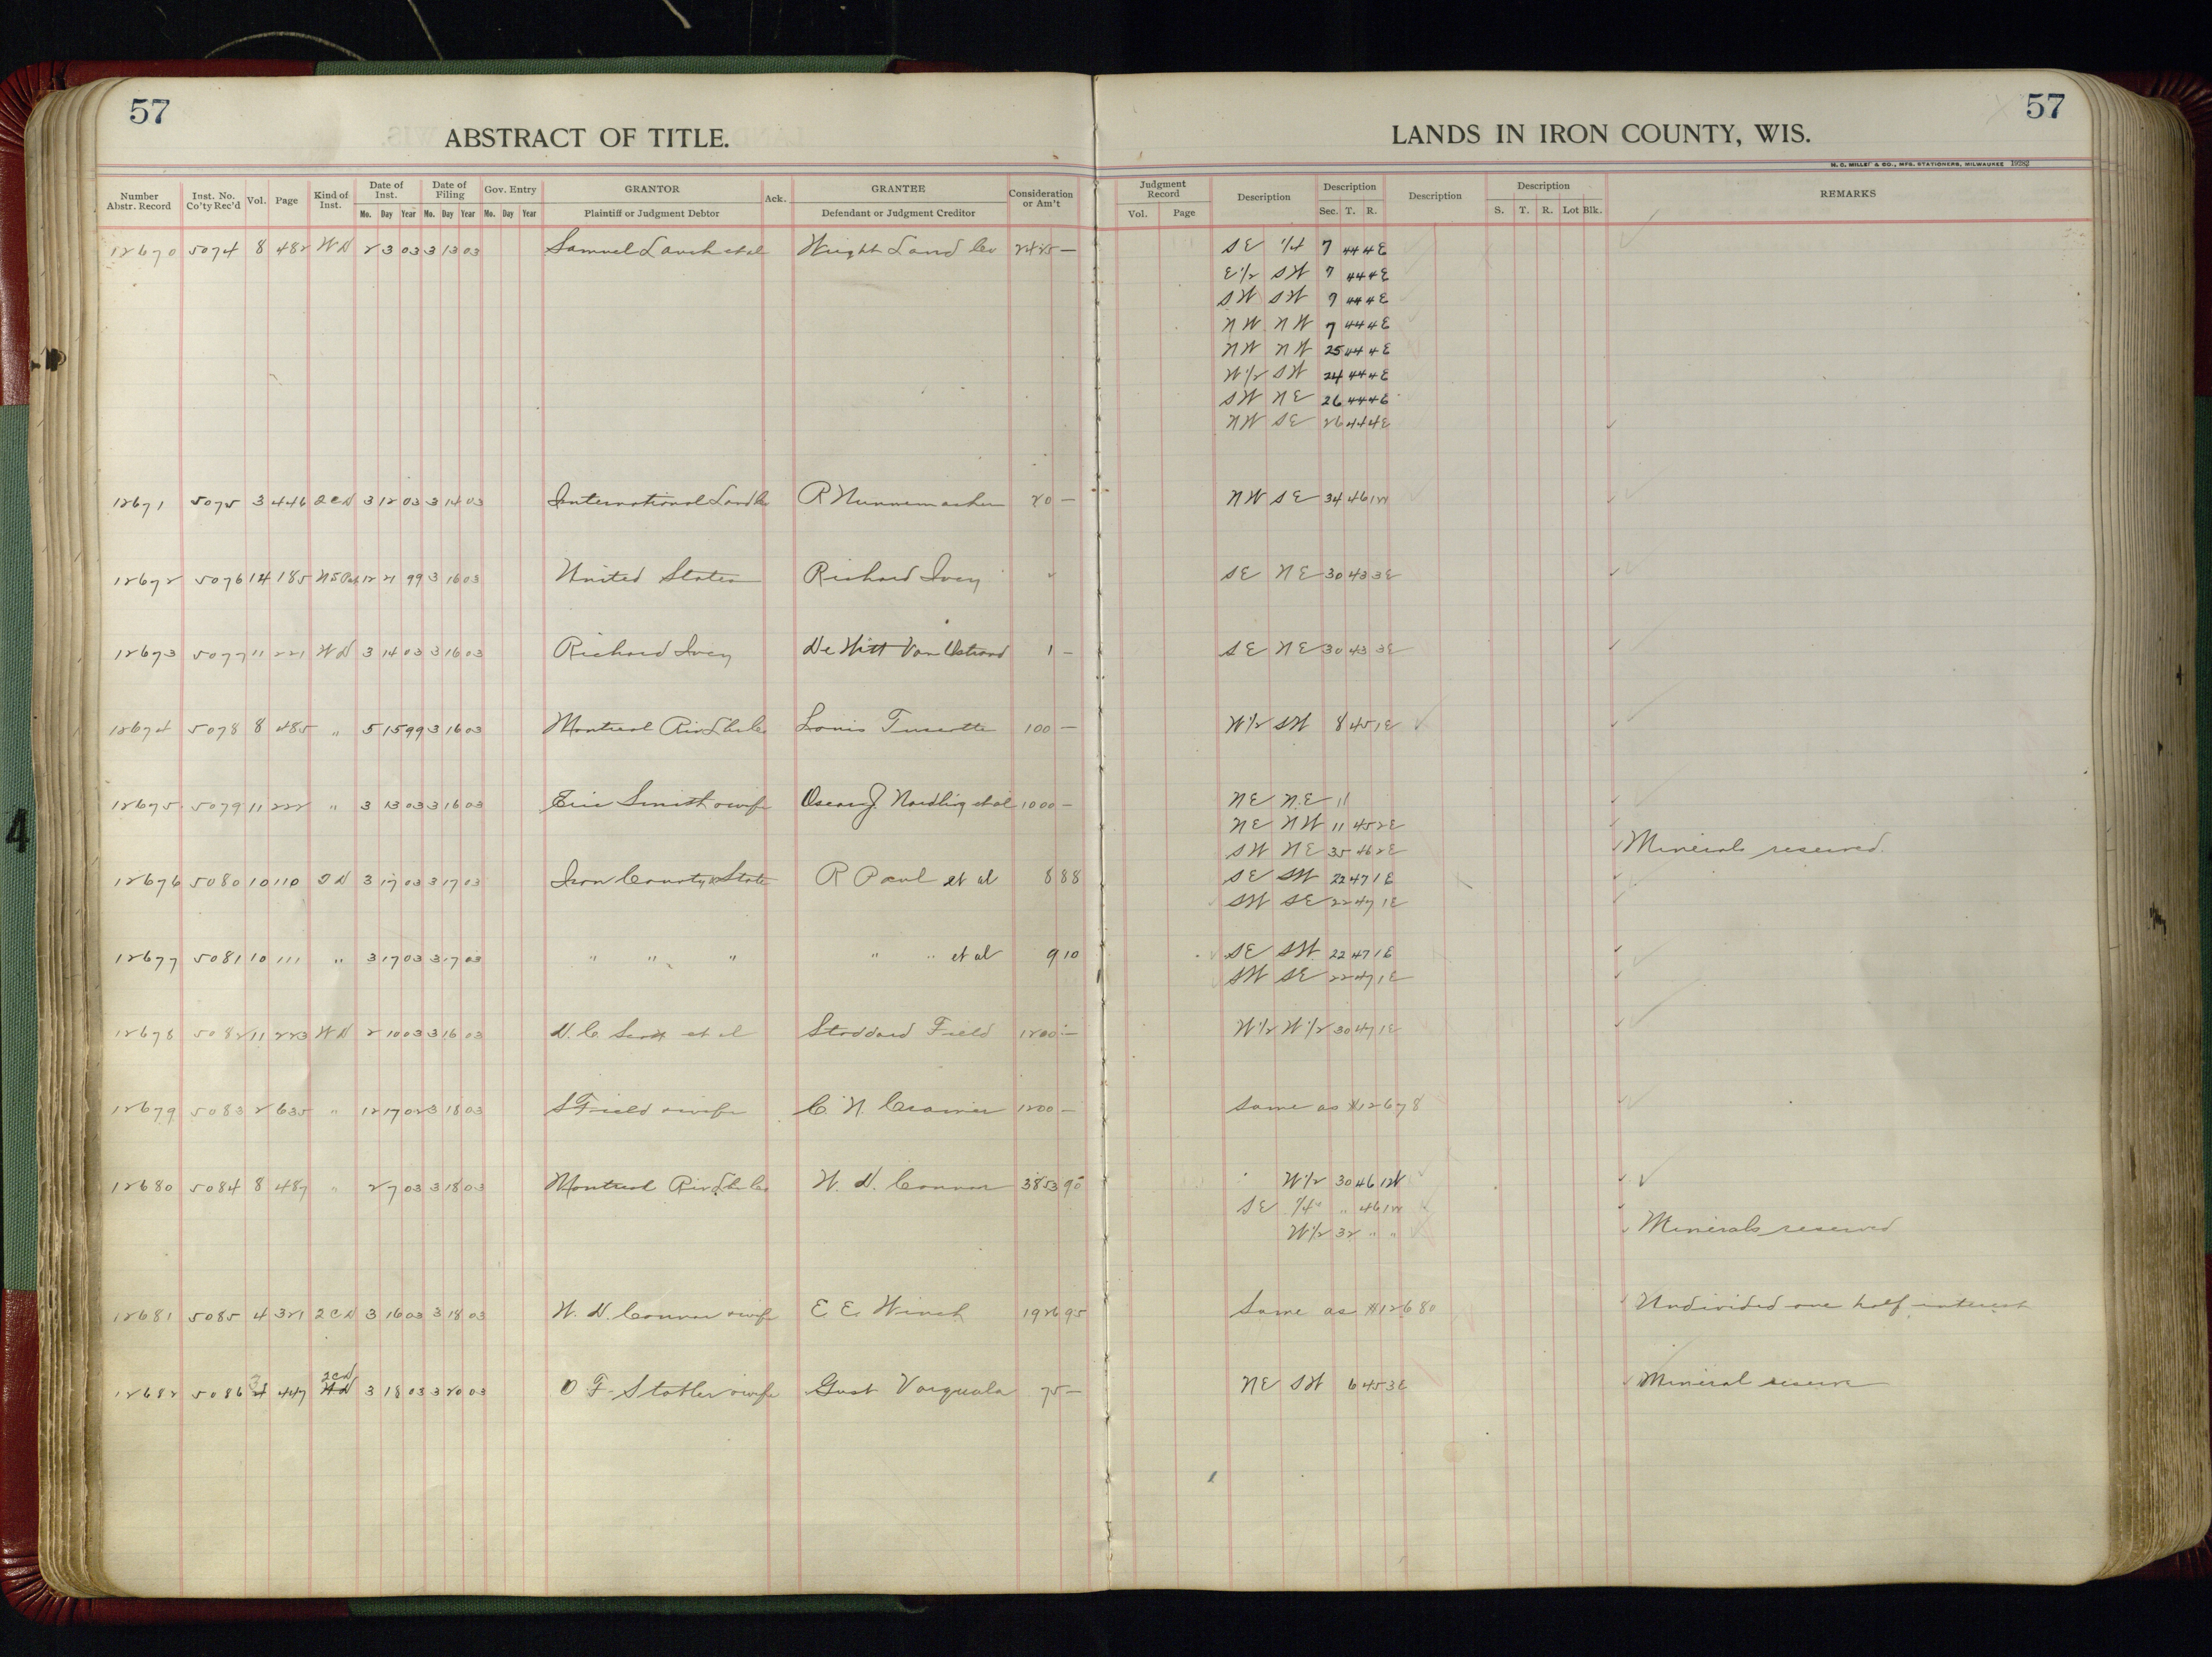 57
ABSTRACT OF TITLE.
LANDS IN IRON COUNTY, WIS.
57
H. C. MILLER & CO., MFG. STATIONERS, MILWAUKEE
Number Abstr. Record Inst. No. Co'ty Rec'd Vol. Page Kind of Inst. Date of Inst. Date of Filing Gov. Entry GRANTOR Ack. GRANTEE Consideration or Am't Judgment Record Description Description Description Description REMARKS
Mo. Day Year Mo. Day Year Mo. Day Year Plaintiff or Judgment Debtor Defendant or Judgment Creditor Vol. Page Sec. T. R. S. T. R. Lot Blk.
12670 5074 8 482 WD 2 3 03 3 13 03 Samuel et al Wright Land Co SE 1/4 7 44 4E
E1/2 SW 7 44 4E
SW SW 7 44 4E
NW NW 7 44 4E
NW NW 25 44 4E
W1/2 SW 24 44 4E
SW NE 26 44 4E
NW SE 26 44 4E
12671 5075 3 446 2CD 3 12 03 3 14 03 International Land Co R Nunnemacher 20 — NW SE 34 46 1W
12672 5076 14 185 US Pat 12 21 99 3 16 03 United States Richard Ivey SE NE 30 43 3E
12673 5077 11 221 WD 3 14 03 3 16 03 Richard Ivey De Witt Van Ostrand 1 — SE NE 30 43 3E
12674 5078 8 485 " 5 15 99 3 16 03 Montreal Riv Lbr Co Louis Turcotte 100 — W1/2 SW 8 45 1E
12675 5079 11 222 " 3 13 03 3 16 03 Eric Smith & wife Oscar J. Nordling et al 1000 — NE NE 11
NE NW 11 45 2E
SW NE 35 46 2E Minerals reserved.
12676 5080 10 110 TD 3 17 03 3 17 03 Iron County & State R Paul et al 8 88 SE SW 22 47 1E
SW SE 22 47 1E
12677 5081 10 111 " 3 17 03 3 17 03 " " " " " et al 9 10 SE SW 22 47 1E
SW SE 22 47 1E
12678 5082 11 223 WD 2 10 03 3 16 03 D. C. Scott et al Stoddard Field 1200 — W1/2 W1/2 30 47 1E
12679 5083 2 635 " 12 17 02 3 18 03 S Field & wife C. N. Cramer 1200 — Same as #12678
12680 5084 8 487 " 2 7 03 3 18 03 Montreal Riv Lbr Co W. D. Connor 3853 90 W1/2 30 46 1W
SE 1/4 " 46 1W
W1/2 32 " " Minerals reserved
12681 5085 4 321 2CD 3 16 03 3 18 03 W. D. Connor & wife E E. Winch 1926 95 Same as #12680 Undivided one half interest
2CD
12682 5086 3 447 WD 3 18 03 3 20 03 O F. Stotler & wife Gust 75 — NE SW 6 45 3E Mineral reserve